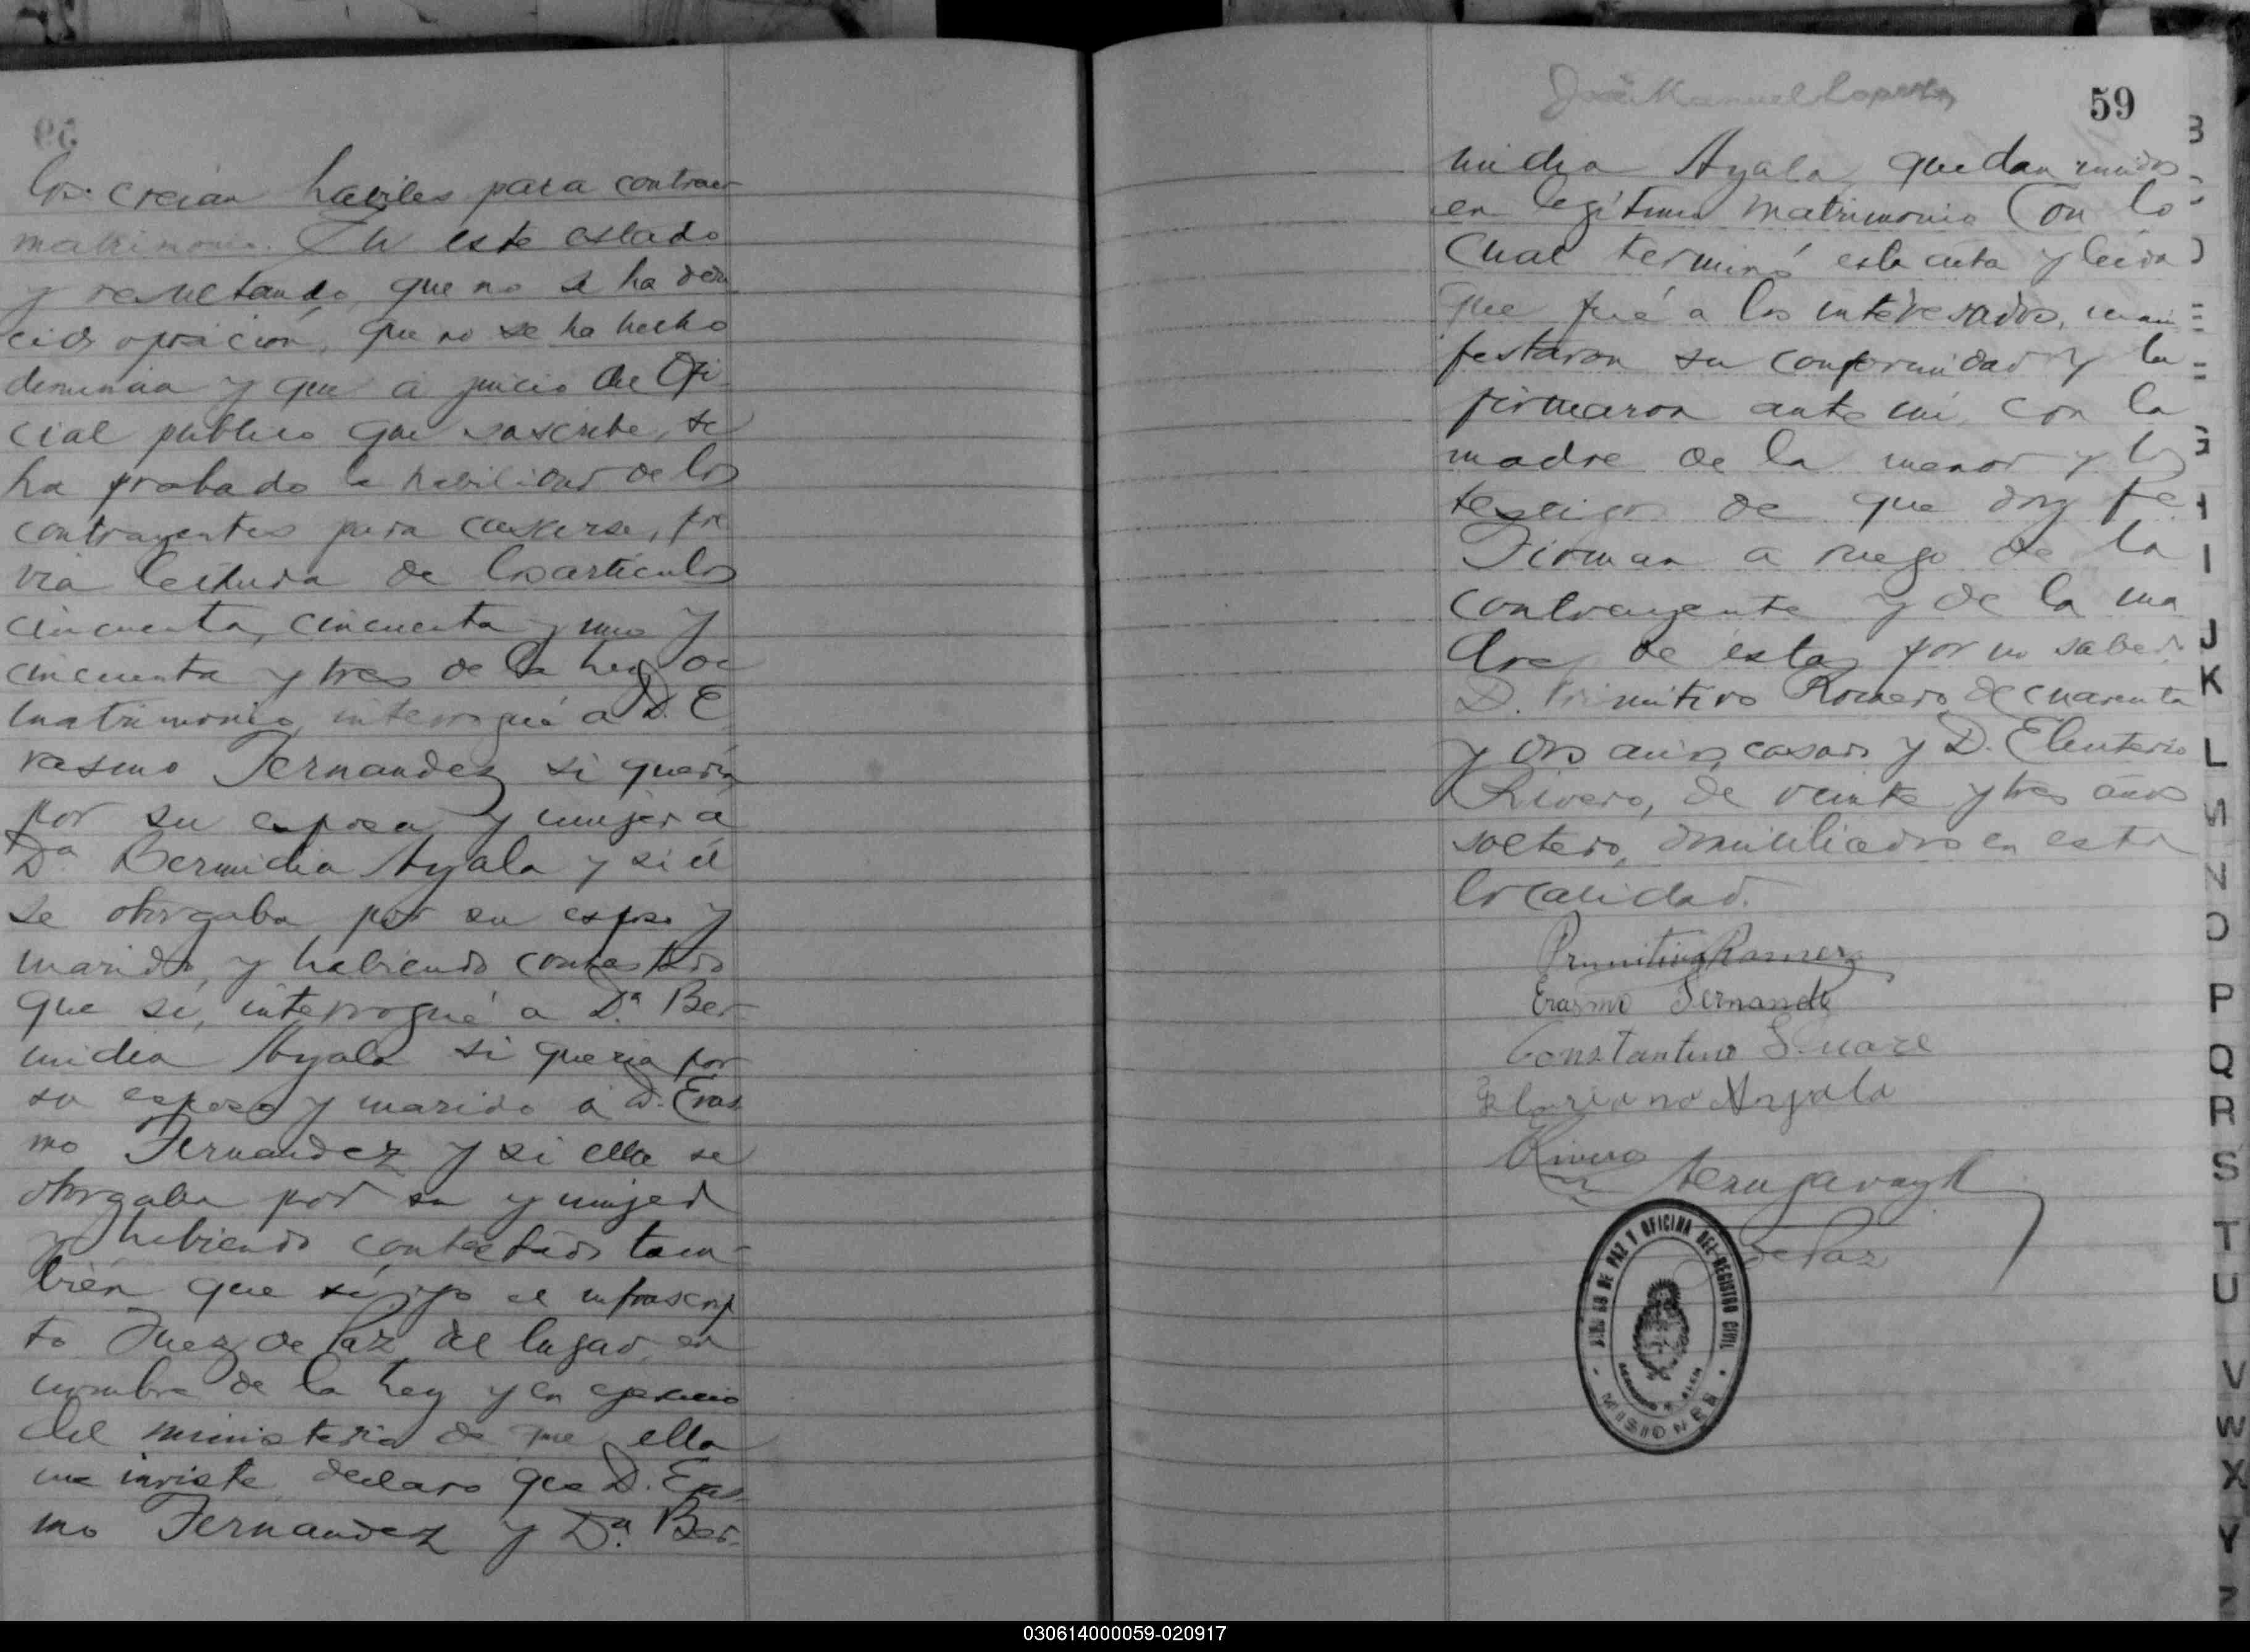 los creian haviles para contraer
matrimonio. En este estado
y resultando, que no se ha dedu
cido oposición, que no se ha hecho
denuncia y que a juicio del Ofi-
cial publico que suscribe, se
ha probado la habilidad de los
contrayentes para casarse, pre
via lectura de los artículos
cincuenta, cincuenta y uno y
cincuenta y tres de la Ley de
matrimonio, interrogué a D. E
rasmo Fernandez si queria
por su esposa y mujer a
Da Bermidia Ayala y si él
se otorgaba por su esposo y
marido, y habiendo contestado
que sí, interrogué a Da. Ber-
midia Ayala si queria por
su esposo y marido a D. Eras
mo Fernandez y si ella se
otorgaba por su y mujer
y habiendo contestado tam-
bién que sí, yo el infrascrip
to Juez de Paz del lugar, en
nombre de la Ley y en ejercicio
del ministerio de que ella
me inviste, declaro que D. Eras-
mo Fernandez y Da. Ber-
59
midia Ayala, quedan unidos
en legítimo matrimonio Con lo
cual terminó esta acta y leida
que fué a los interesados, mani
festaron su conformidad y la
firmaron ante mi, con la
madre de la menor y los
testigos de que doy fe
Firman a ruego de la
contrayente y de la ma
dre de ésta, por no saber
D. Primitivo Romero, de cuarenta
y dos años, casado y D. Eleuterio
Rivero, de veinte y tres años
soltero, domiciliados en esta
localidad.
Primitivo Romero
Erasmo Fernande
Constantino Suare
Floriano Ayala
Rivero
de Paz
DE PAZ Y OFICINA DEL REGISTRO CIVIL
MISIONES
B
J
K
L
M
N
O
P
Q
R
S
T
U
V
W
X
Y
Z
030614000059-020917